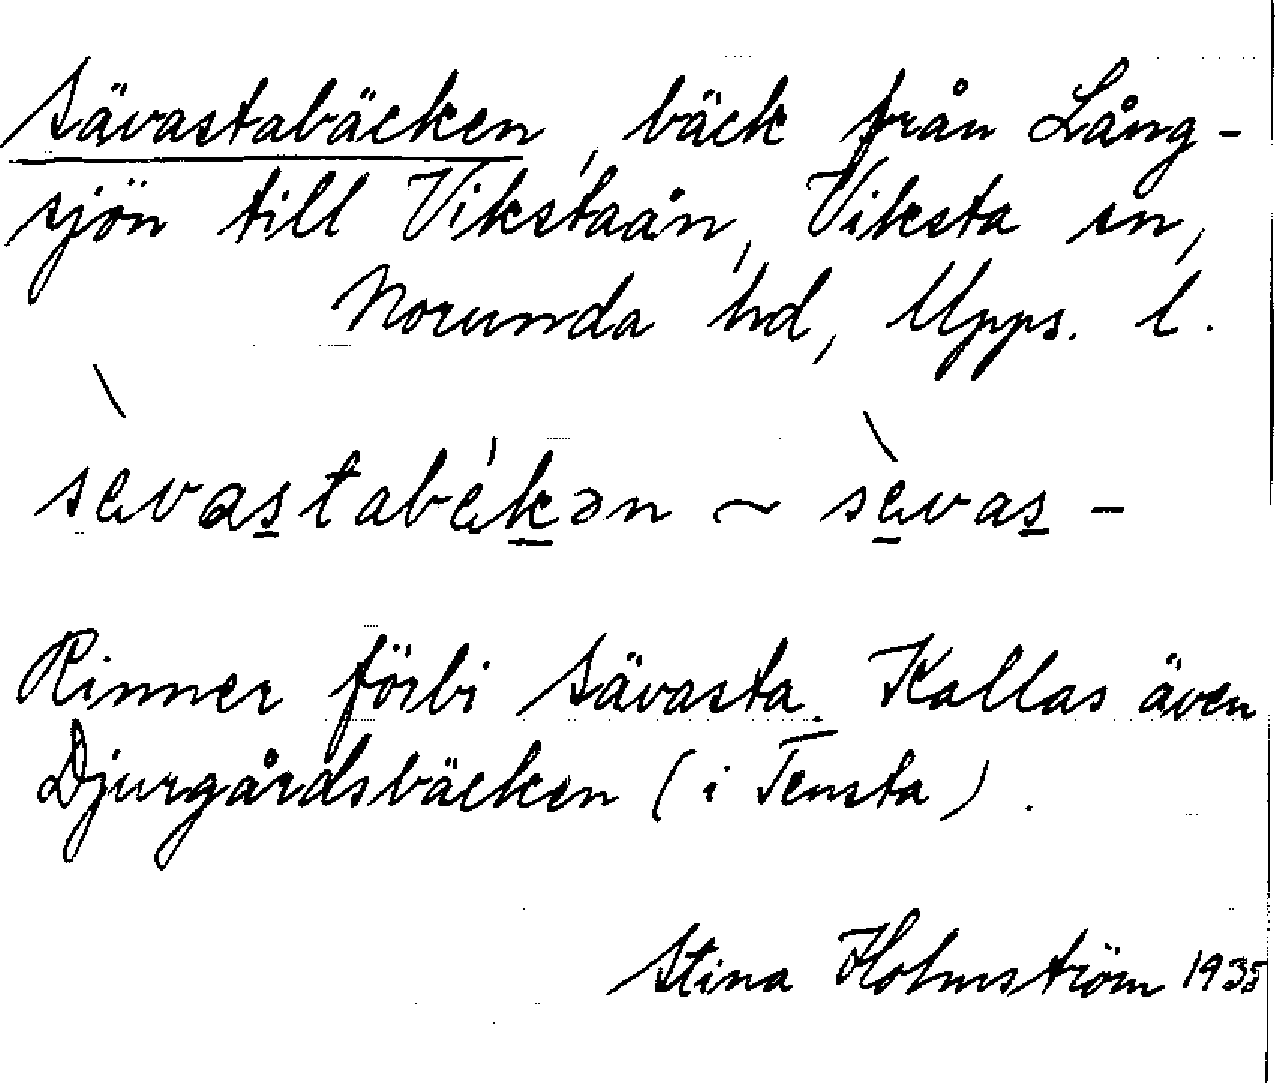 Sävastabäcken, bäck från Lång-
sjön till Vikstaån, Viksta sn,
Norunda hd, Upps. l.
sὲvastabέkən ~ sὲvas-
Rinner förbi Sävasta. Kallas även
Djurgårdsbäcken (i Tensta).
Stina Holmström 1935